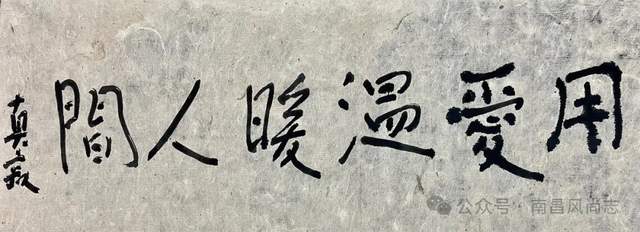 用愛溫暖人間
真寂
公众号·南昌风尚志